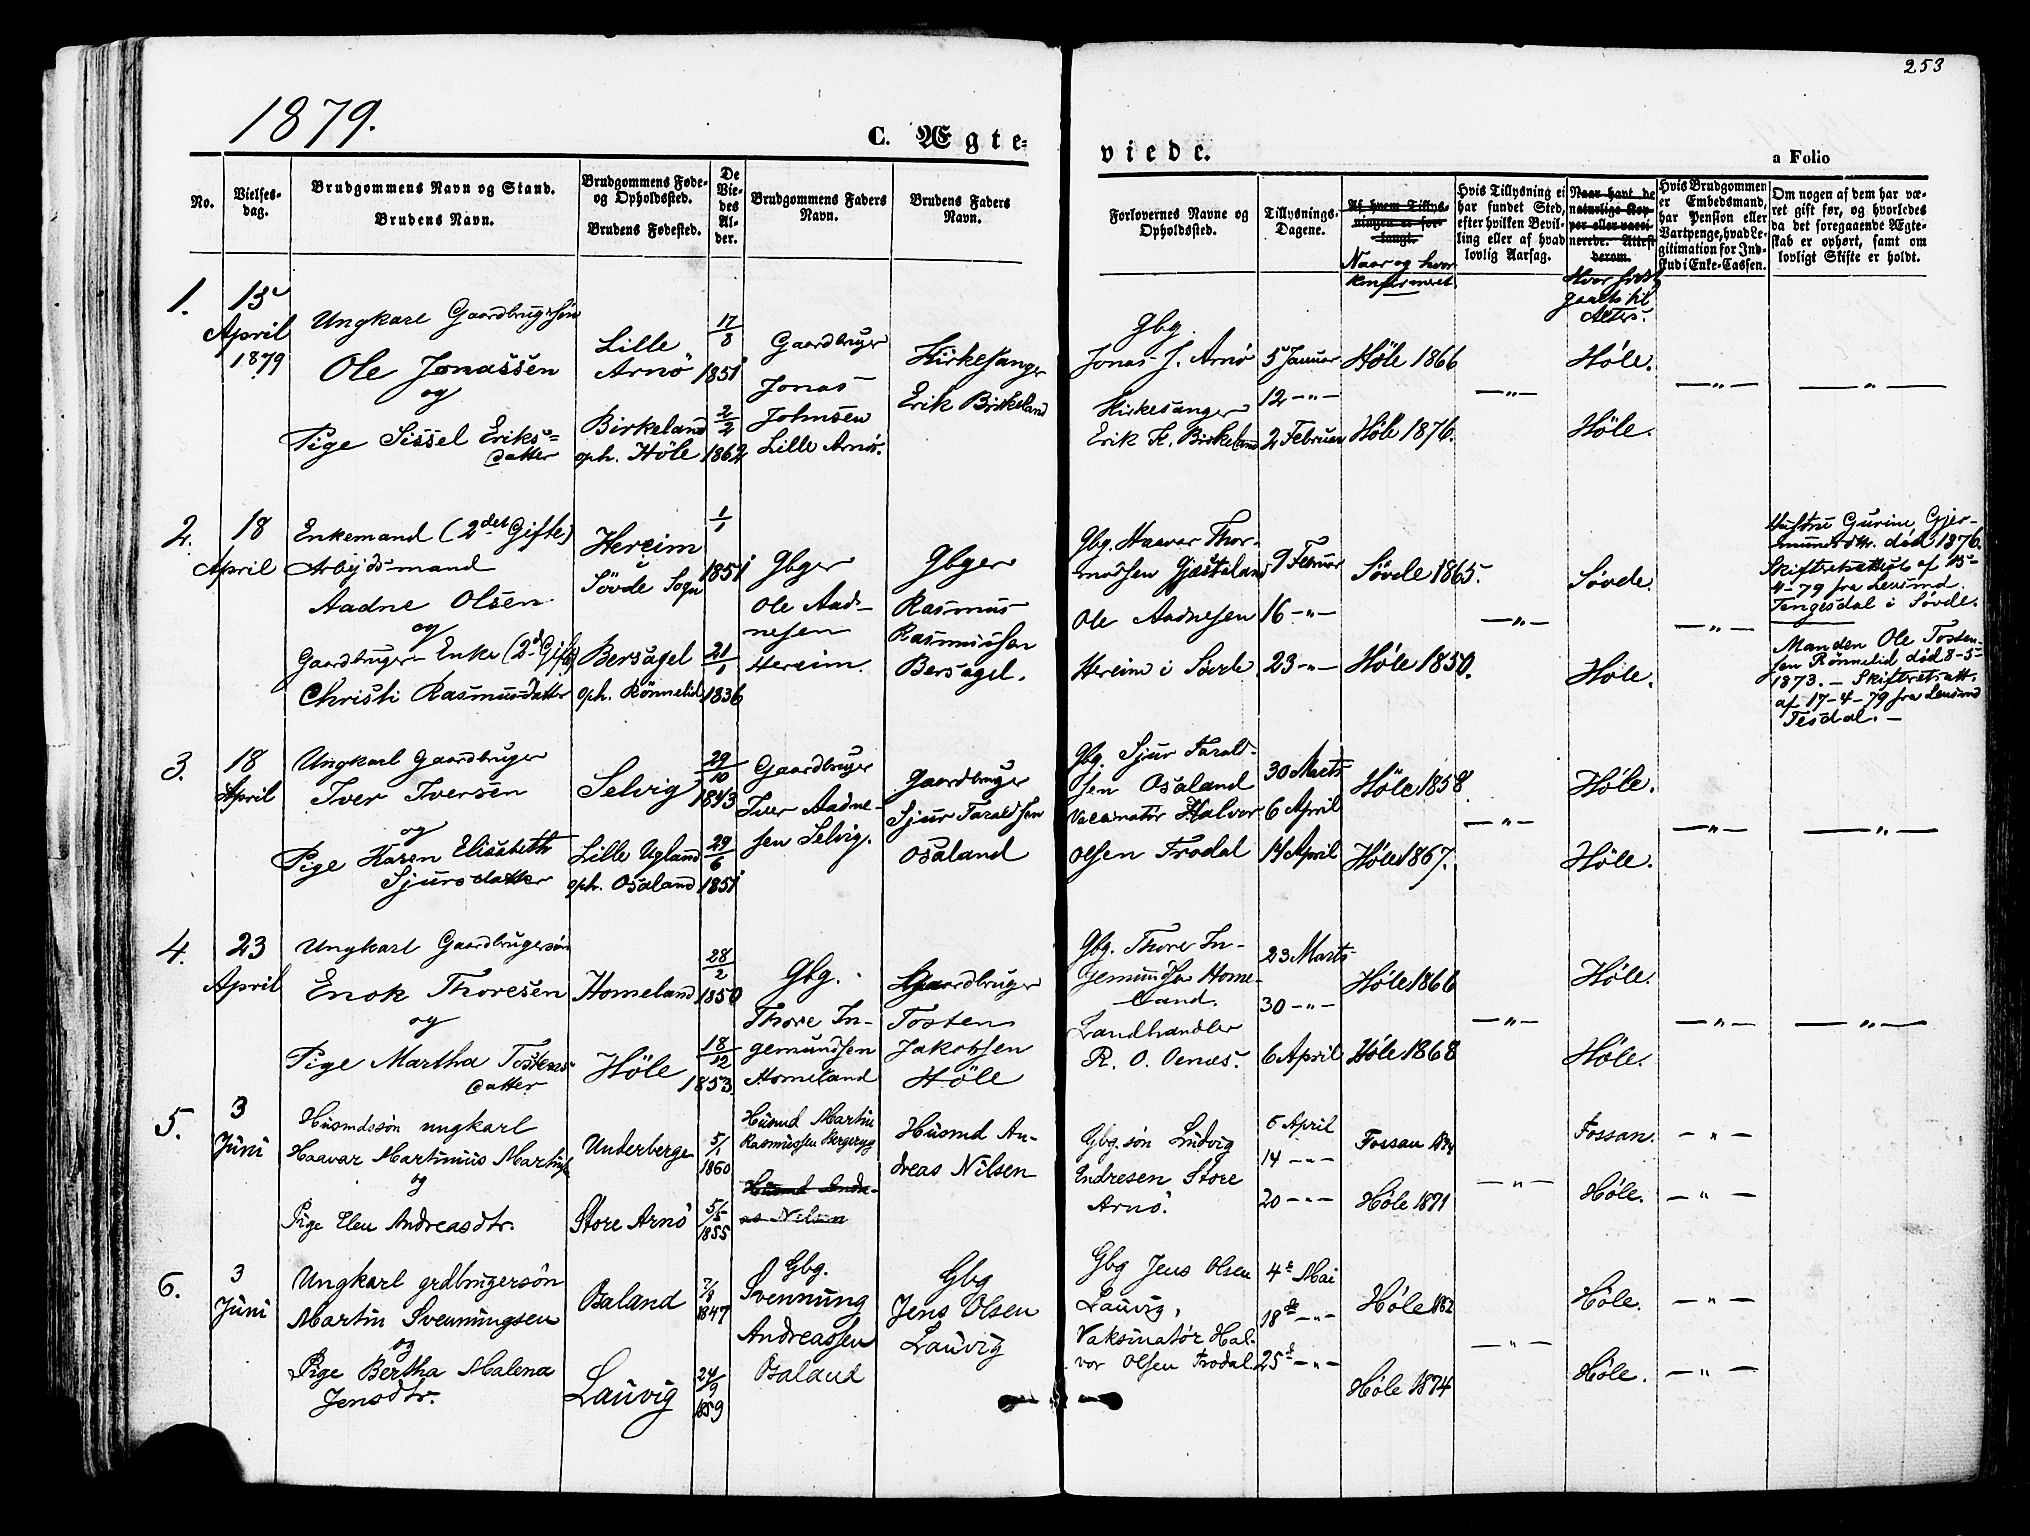 253
1879.
C. Ægte-
viede.
a Folio
No.
Vielses-
dag.
Brudgommens Navn og Stand.
Brudens Navn.
Brudgommens Føde-
og Opholdssted.
Brudens Fødested.
De
Vie-
des
Al-
der.
Brudgommens Faders
Navn.
Brudens Faders
Navn.
Forlovernes Navne og
Opholdssted.
Tillysnings-
Dagene.
Af hvem Tillys-
ningen er for-
langt.
Naar og hvor
konfirmeret
Hvis Tillysning ei
har fundet Sted,
efter hvilken Bevil-
ling eller af hvad
lovlig Aarsag.
Naar havt de
naturlige Kop-
per eller vacci-
nerede. Attest
derom.
Hvor sidst
gaaet til
Alters.
Hvis Brudgommen
er Embedsmand,
har Pension eller
Vartpenge, hvad Le-
gitimation for Ind-
skud i Enke-Cassen.
Om nogen af dem har væ-
ret gift før, og hvorledes
da det foregaaende Ægte-
skab er ophørt, samt om
lovligt Skifte er holdt.
1.
15
April
1879
Ungkarl Gaardbrugersøn
Ole Jonassen
og
Pige Sissel Eriks-
datter
Lille
Arnö
Birkeland
oph. Höle
17/8
1851
2/2
1862
Gaardbruger
Jonas
Johnsen
Lille Arnö.
Kirkesanger
Erik Birkeland
Gbg.
Jonas J. Arnö
Kirkesanger
Erik K. Birkeland
5 Januar
12 -"-
2 Februar
Höle 1866
Höle 1876.
-"-
Höle.
Höle.
-"-
-"-
2.
18
April
Enkemand (2det Gifte)
Arbeidsmand
Aadne Olsen
og
Gaardbruger-Enke (2d Gifte)
Christi Rasmusdatter
Hereim
i
Sövde Sogn
Bersagel
oph. Rönnelid
1/1
1851
21/1
1836
Gbger
Ole Aad-
nesen
Hereim.
Gbger
Rasmus
Rasmussen
Bersagel.
Gbg. Haavar Thor-
modsen Gjesteland
Ole Aadnesen
Hereim i Sövde
9 Februar
16 -"-
23 -"-
Sövde 1865.
Höle 1850.
-"-
Sövde.
Höle.
-"-
Hustru Gurine Gjer-
mundsdtr. död 1876.
Skifteretsattest af 15-
4-79 fra Lensmd.
Tengesdal i Sövde.
Manden Ole Tosten-
sen Rönnelid död 8-5-
1873. - Skifteret. att.
af 17-4-79 fra Lensmd
Tesdal. -
3.
18
April
Ungkarl Gaardbruger
Iver Iversen
og
Pige Karen Elisabeth
Sjursdatter
Selvig
Lille Ugland
oph. Osaland
29/10
1843
29/6
1851
Gaardbruger
Iver Aadne-
sen Selvig.
Gaardbruger
Sjur Taraldsen
Osaland
Gbg. Sjur Tarald-
sen Osaland
Vaccinatör Halvor
Olsen Frodal
30 Marts
6 April
14 April
Höle 1858.
Höle 1867.
-"-
Höle.
Höle.
-"-
-"-
4.
23
April
Ungkarl Gaardbrugersön
Enok Thoresen
og
Pige Martha Tostens-
datter
Homeland
Höle
28/2
1850
18/12
1853.
Gbg.
Thore In-
gemundsen
Homeland
Gaardbruger
Tosten
Jakobsen
Höle
Gbg. Thore In-
gemundsen Home-
land.
Landhandler
R. O. Oenæs.
23 Marts
30 -"-
6 April
Höle 1866
Höle 1868
-"-
Höle.
Höle.
-"-
-"-
5.
3
Juni
Husmdssön ungkarl
Haavar Martinius Martins.
og
Pige Elen Andreasdtr.
Underberge
Store Arnö
5/1
1860
5/5
1855
Husmd Martin
Rasmussen Bergeryg
Husmd Andre-
as Nilsen
Husmd An-
dreas Nilsen
Gbg.sön Ludvig
Endresen Store
Arnö.
6 April
14 -"-
20 -"-
Fossan 1874
Höle 1871
-"-
Fossan.
Höle.
-"-
-"-
6.
3
Juni
Ungkarl grdbrugersön
Martin Svenningsen
og
Pige Bertha Malena
Jensdtr.
Osaland
Lauvig
7/8
1847
24/9
1859
Gbg.
Svennung
Andreassen
Osaland
Gbg
Jens Olsen
Lauvig
Gbg Jens Olsen
Lauvig,
Vaksinatør Hal-
vor Olsen Frodal.
4de Mai
18de -"-
25de -"-
Höle 1862
Höle 1874
-"-
Höle.
Höle.
-"-
-"-